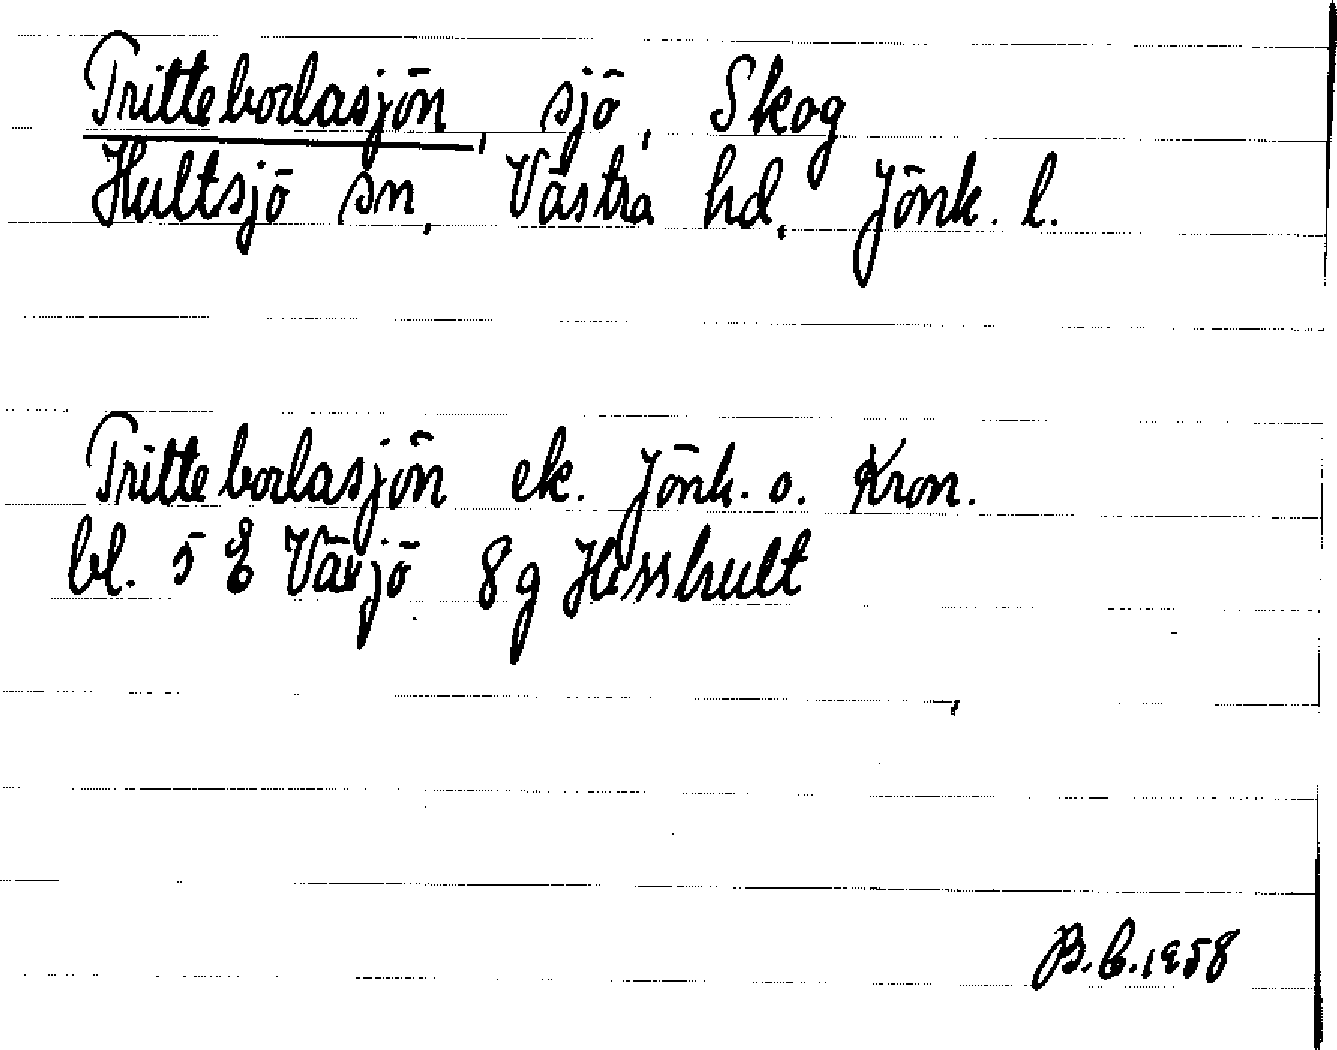 Tritteborlasjön, sjö, Skog
Hultsjö sn, Västra hd, Jönk. l.
Tritteborlasjön ek. Jönk. o. Kron.
bl. 5 E Växjö 8g Hisshult
B.C. 1958